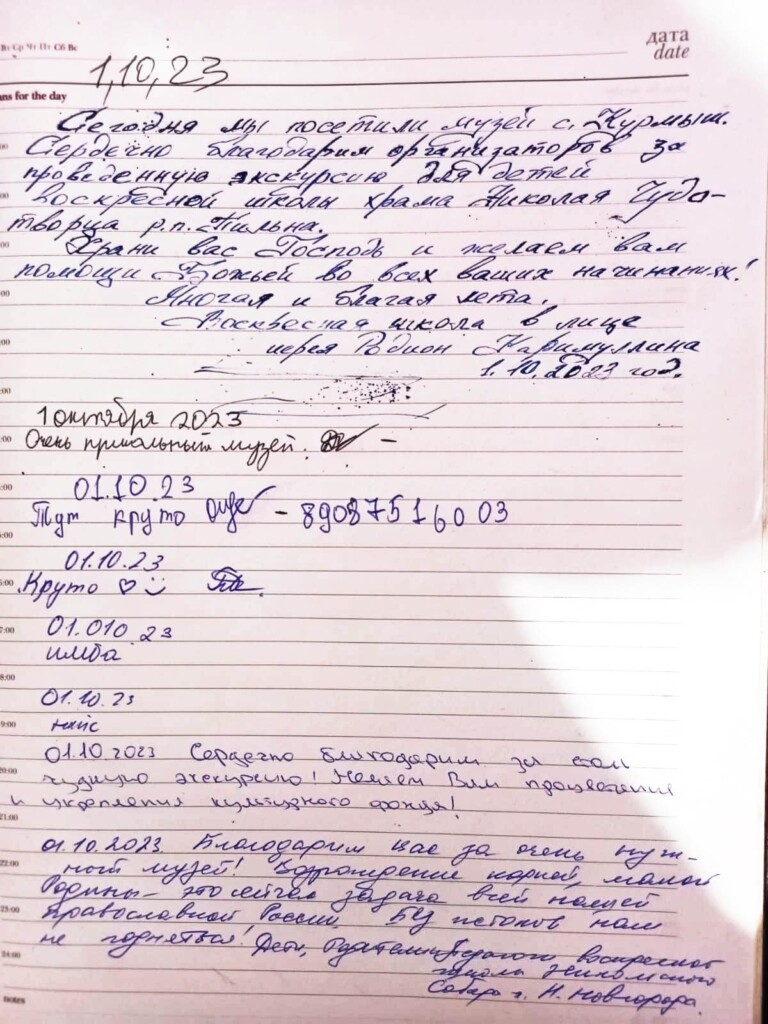 Вт Ср Чт Пт Сб Вс
дата
date
1,10,23
ans for the day
Сегодня мы посетили музей с. Курмыш.
Сердечно благодарим организаторов за
проведённую экскурсию для детей
воскресной школы храма Николая Чудо-
творца р.п. Пильна.
Храни вас Господь и желаем вам
помощи Божьей во всех ваших начинаниях!
Многая и благая лета.
Воскресная школа в лице
иерея Родион Каримуллина
1.10.2023 год.
1 октября 2023
Очень прикольный музей. –
01.10.23
Тут круто – 89087516003
01.10.23
Круто ♡
01.010.23
имба
01.10.23
найс
01.10.2023 Сердечно благодарим за
чудную экскурсию! Желаем Вам процветания
и укрепления культурного фонда!
01.10.2023 Благодарим Вас за очень нуж-
ный музей! Возрождение корней, малой
Родины – это сейчас задача всей нашей
православной России. Без истоков нам
не подняться! Дети, Родители, Педагоги воскресной
школы
Собора г. Н. Новгорода.
7:00
8:00
9:00
20:00
21:00
22:00
23:00
24:00
notes